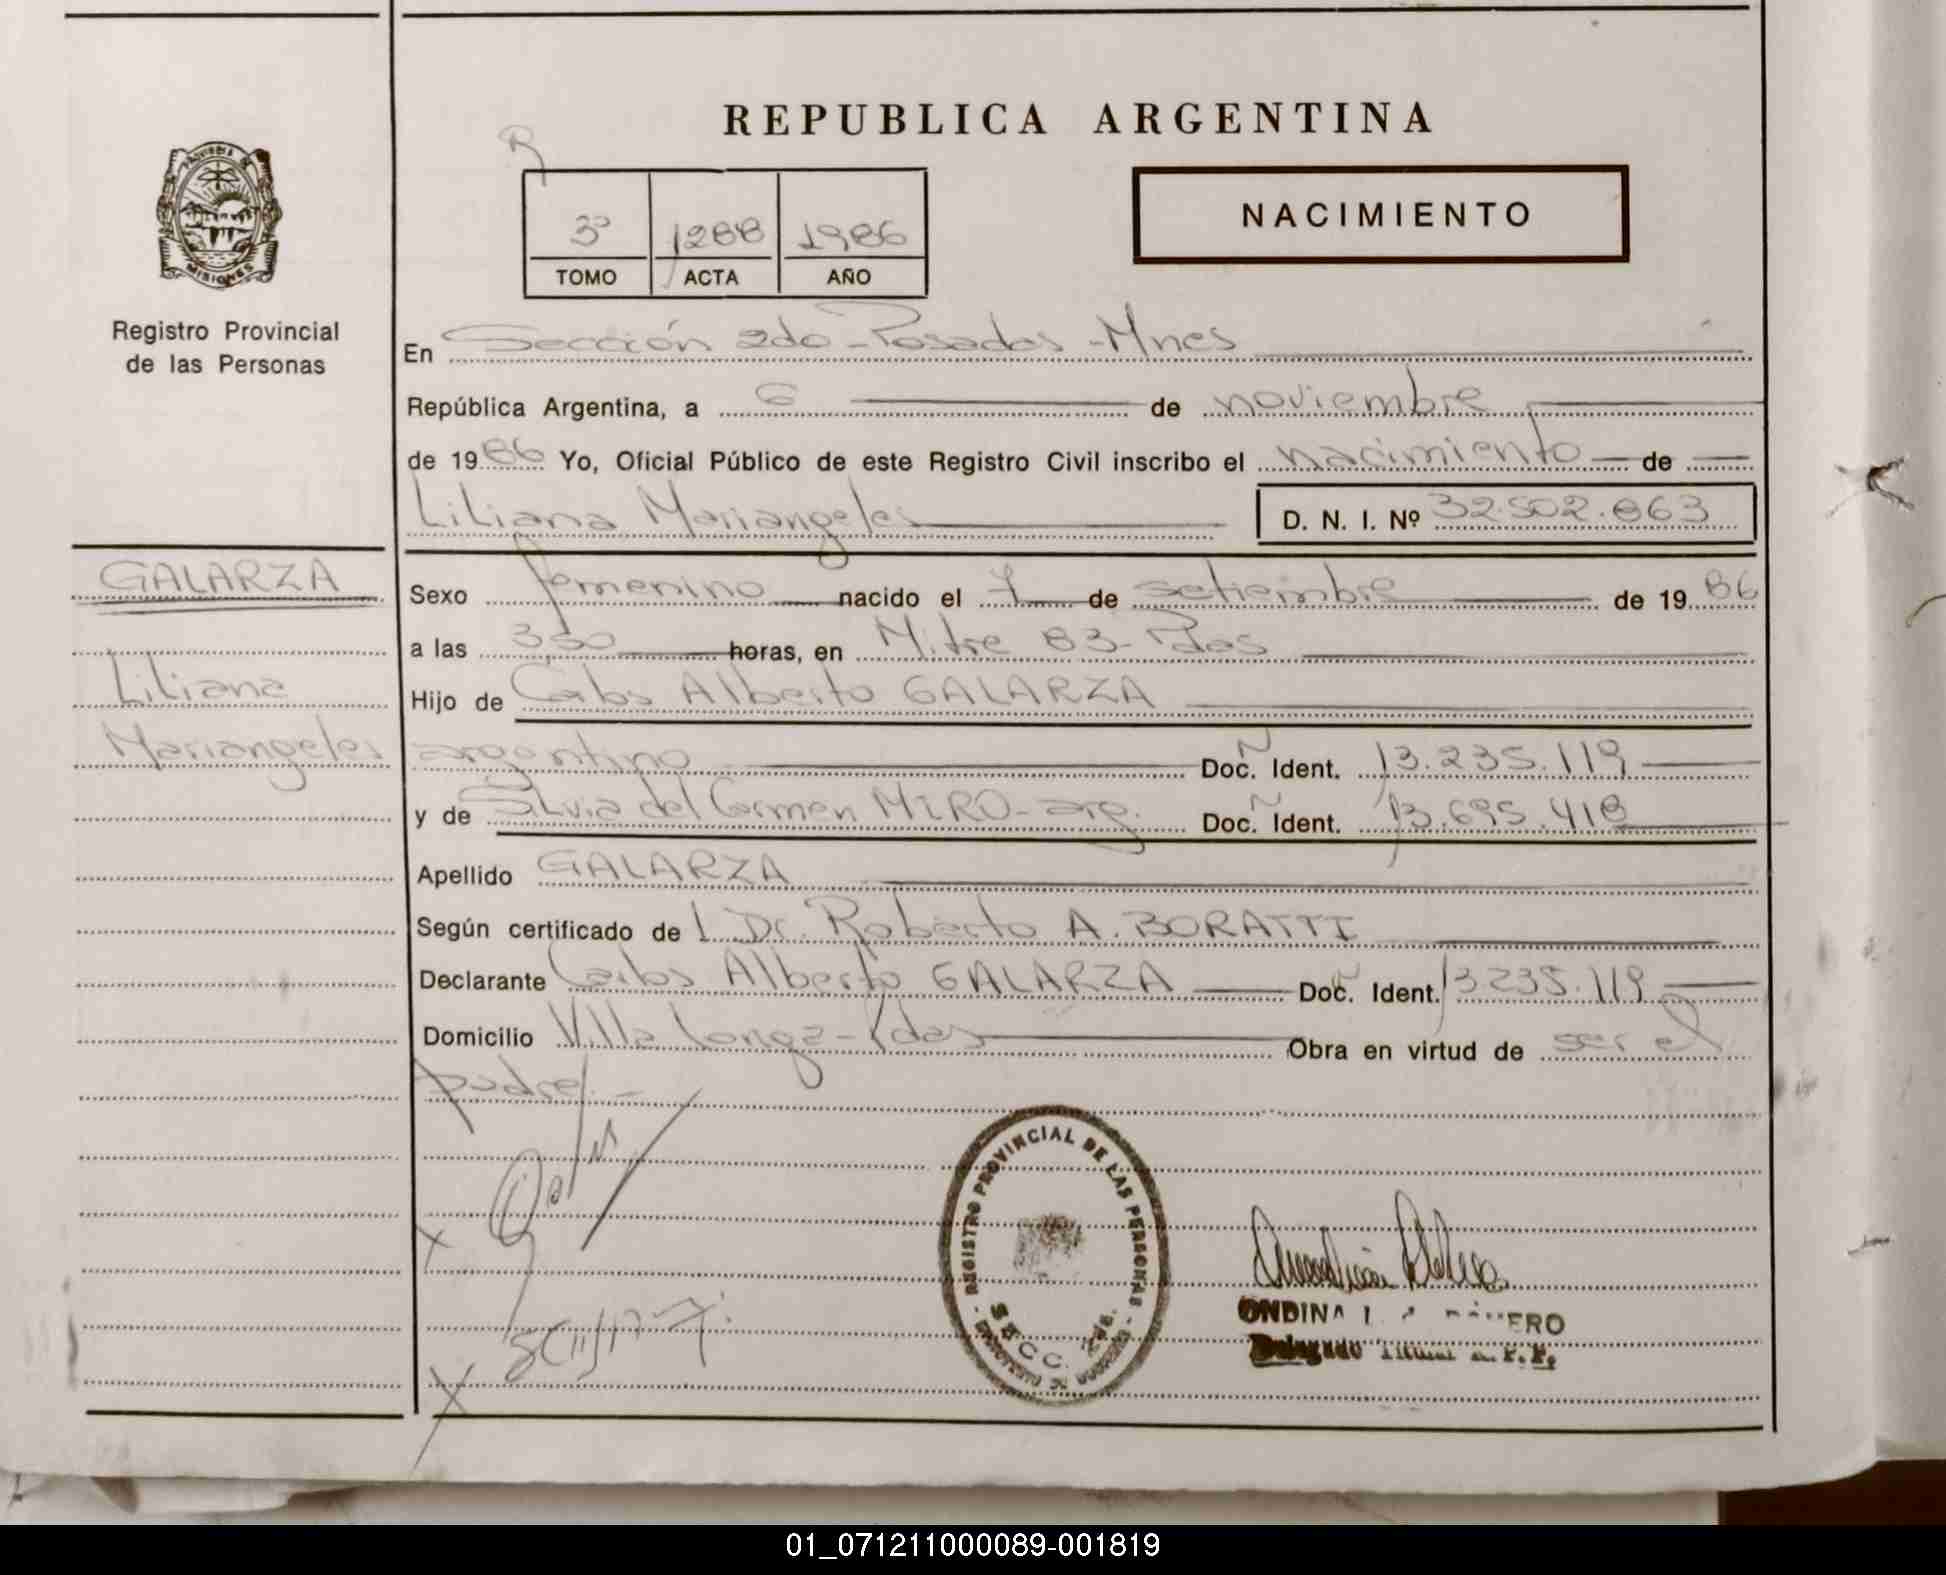 REPUBLICA ARGENTINA
NACIMIENTO
3º 1288 1986
TOMO ACTA AÑO
PROVINCIA DE
MISIONES
Registro Provincial
de las Personas
En Sección 2do - Posadas - Mnes
República Argentina, a 6 de noviembre
de 1986 Yo, Oficial Público de este Registro Civil inscribo el nacimiento de
Liliana Mariangeles D. N. I. Nº 32.502.863
GALARZA
Liliana
Mariangeles
Sexo femenino nacido el 7 de setiembre de 1986
a las horas, en Mitre 83 - Pdas
Hijo de Carlos Alberto GALARZA
argentino Doc. Ident. 13.235.119
y de Silvia del Carmen MIRO - arg. Doc. Ident. 13.695.418
Apellido GALARZA
Según certificado de l Dr. Roberto A. BORATTI
Declarante Carlos Alberto GALARZA Doc. Ident. 13235.119
Domicilio Villa Longa - Pdas Obra en virtud de ser el
padre.-
REGISTRO PROVINCIAL DE LAS PERSONAS
SECC. 2da.
ONDINA
Delegado Titular R. P. P.
01_071211000089-001819